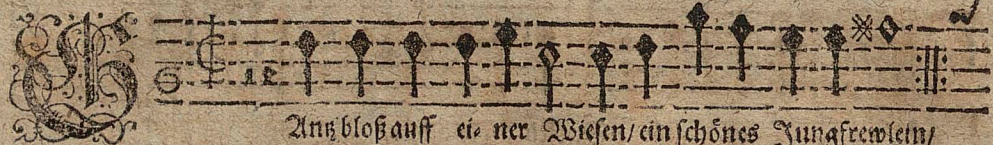 GAntz bloß auff ei- ner Wiesen/ ein schönes Jungfrewlein/